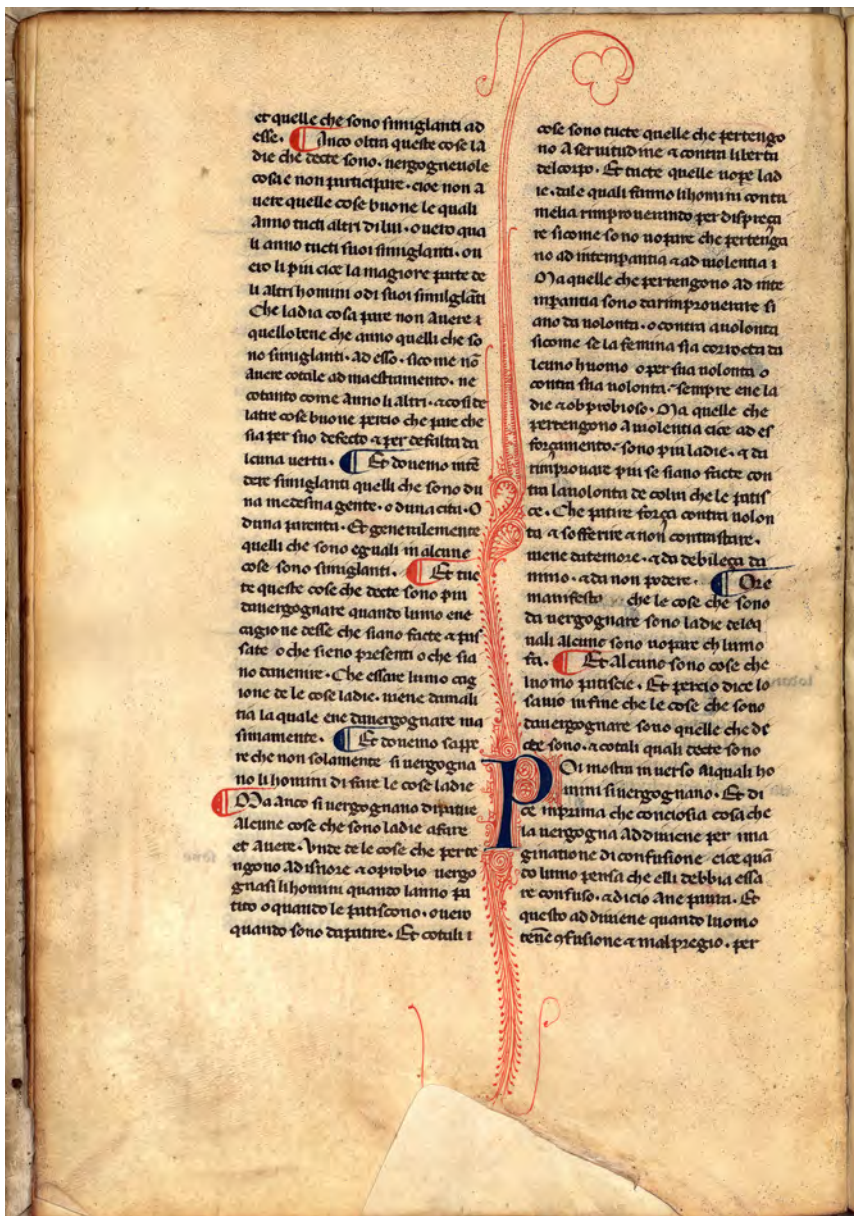 et quelle che sono simiglanti ad
esse. ¶ Anco oltra queste cose la
die che decte sono. uergogneuole
cosa e non participare. cioe non a
uere quelle cose buone le quali
anno tucti altri di lui. o uero qua
li anno tucti suoi simiglanti. ou
ero li piu cice la magiore parte de
li altri homini o di suoi similglāti
Che ladia cosa pare non auere i
quello bene che anno quelli che so
no simiglanti. ad esso. sicome nō
auere cotale ad maestramento. ne
cotanto come anno li altri. ⁊ cosi de
latre cose buone percio che pare che
sia per suo defecto ⁊ per defalta da
lcuna uertu. ¶ Et douemo intē
dere simiglanti quelli che sono du
na medesma gente. o duna cita. O
duna parenta. Et generalemente
quelli che sono eguali in alcune
cose sono simiglanti. ¶ Et tuc
te queste cose che decte sono piu
dauergognare quando lumo ene
cagione desse che siano facte ⁊ pas
sate o che sieno presenti o che sia
no dauenire. Che essare lumo cag
ione de le cose ladie. uiene da mali
tia la quale ene dauergognare ma
simamente. ¶ Et douemo sappe
re che non solamente si uergogna
no li homini di fare le cose ladie
¶ Ma anco si uergognano di patire
alcune cose che sono ladie a fare
et auere. Unde de le cose che perte
ngono ad isnore ⁊ oprobio uergo
gnasi li homini quando lanno pa
tito o quando le patiscono. o uero
quando sono da patire. Et cotali i
cose sono tucte quelle che pertengo
no a seruitudine ⁊ contra liberta
del corpo. Et tucte quelle uopre lad
ie. dale quali fanno li homini contu
melia rimprouerando per dispreça
re sicome sono uopare che pertenga
no ad intempantia ⁊ ad uiolentia i
Ma quelle che pertengono ad inte
mpantia sono da rimprouerare si
ano da uolonta. o contra a uolonta
sicome se la femina sia corrocta da
lcuno huomo o per sua uolonta o
contra sua uolonta. sempre ene la
die ⁊ obprobioso. Ma quelle che
pertengono a uiolentia cice ad es
forçamento. sono piu ladie. ⁊ da
rimprouare piu se siano facte con
tra la uolonta de colui che le patis
ce. Che patire força contra uolon
ta ⁊ sofferire ⁊ non contrastare.
uiene da temore. ⁊ da debileça da
nimo. ⁊ da non podere. ¶ Ore
manifesto che le cose che sono
da uergognare sono ladie deleq
uali alcune sono uopare ch lumo
fa. ¶ Et alcuno sono cose che
luomo patiscie. Et percio dice lo
sauio in fine che le cose che sono
dauergognare sono quelle che de
cte sono. ⁊ cotali quali decte sono
Poi mostra in uerso ai quali ho
mini si uergognano. Et di
ce inprima che conciosia cosa che
la uergogna addiuiene per ima
ginatione di confusione cice quā
do lumo pensa che elli debbia essa
re confuso. ⁊ di cio ane paura. Et
questo ad diuiene quando luomo
tene ꝯfusione ⁊ mal pregio. per